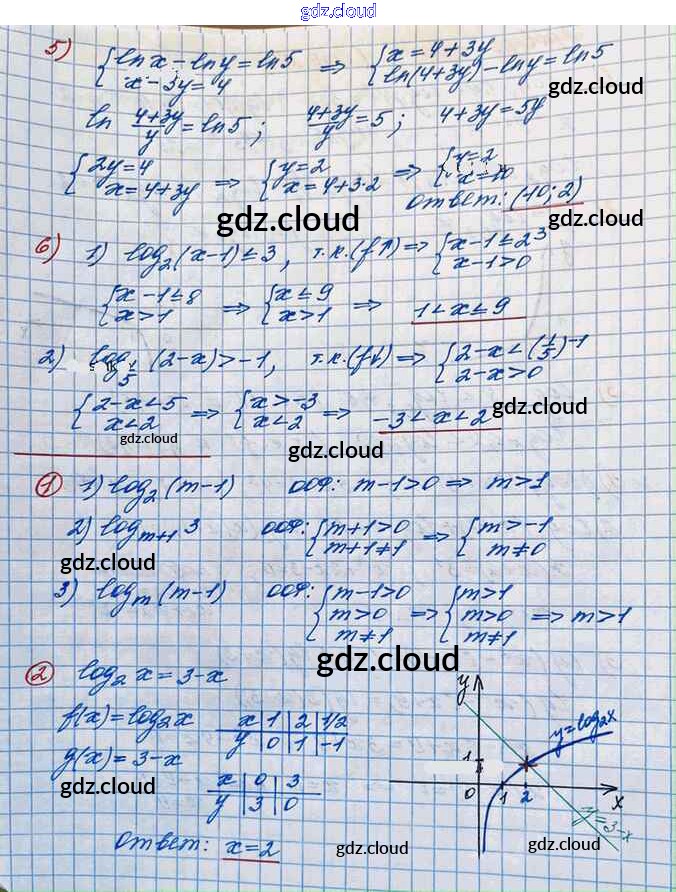 gdz.cloud
5) { ln x - ln y = ln 5 ⇒ { x = 4 + 3y
x - 3y = 4 ln(4+3y) - ln y = ln 5
gdz.cloud
ln (4+3y)/y = ln 5; (4+3y)/y = 5; 4 + 3y = 5y
{ 2y = 4 ⇒ { y = 2 ⇒ { y = 2
x = 4 + 3y x = 4 + 3·2 x = 10
gdz.cloud Ответ: (10; 2) gdz.cloud
6) 1) log₂(x-1) ≤ 3, т.к. (f↑) ⇒ { x - 1 ≤ 2³
x - 1 > 0
{ x - 1 ≤ 8 ⇒ { x ≤ 9 ⇒ 1 < x ≤ 9
x > 1 x > 1
gdz.cloud gdz.cloud
2) log_{1/5} (2-x) > -1, т.к. (f↓) ⇒ { 2 - x < (1/5)⁻¹
2 - x > 0
{ 2 - x < 5 ⇒ { x > -3 ⇒ -3 < x < 2
x < 2 x < 2
gdz.cloud gdz.cloud gdz.cloud
① 1) log₂(m-1) ООФ: m - 1 > 0 ⇒ m > 1
2) log_{m+1} 3 ООФ: { m + 1 > 0 ⇒ { m > -1
m + 1 ≠ 1 m ≠ 0
gdz.cloud gdz.cloud
3) log_m (m-1) ООФ: { m - 1 > 0 ⇒ { m > 1
m > 0 m > 0 ⇒ m > 1
m ≠ 1 m ≠ 1
gdz.cloud
② log₂ x = 3 - x
f(x) = log₂ x
x | 1 | 2 | 1/2
y | 0 | 1 | -1
g(x) = 3 - x
gdz.cloud
x | 0 | 3
y | 3 | 0
y
y = log₂ x
1
0 1 2 x
y = 3 - x
Ответ: x = 2
gdz.cloud gdz.cloud